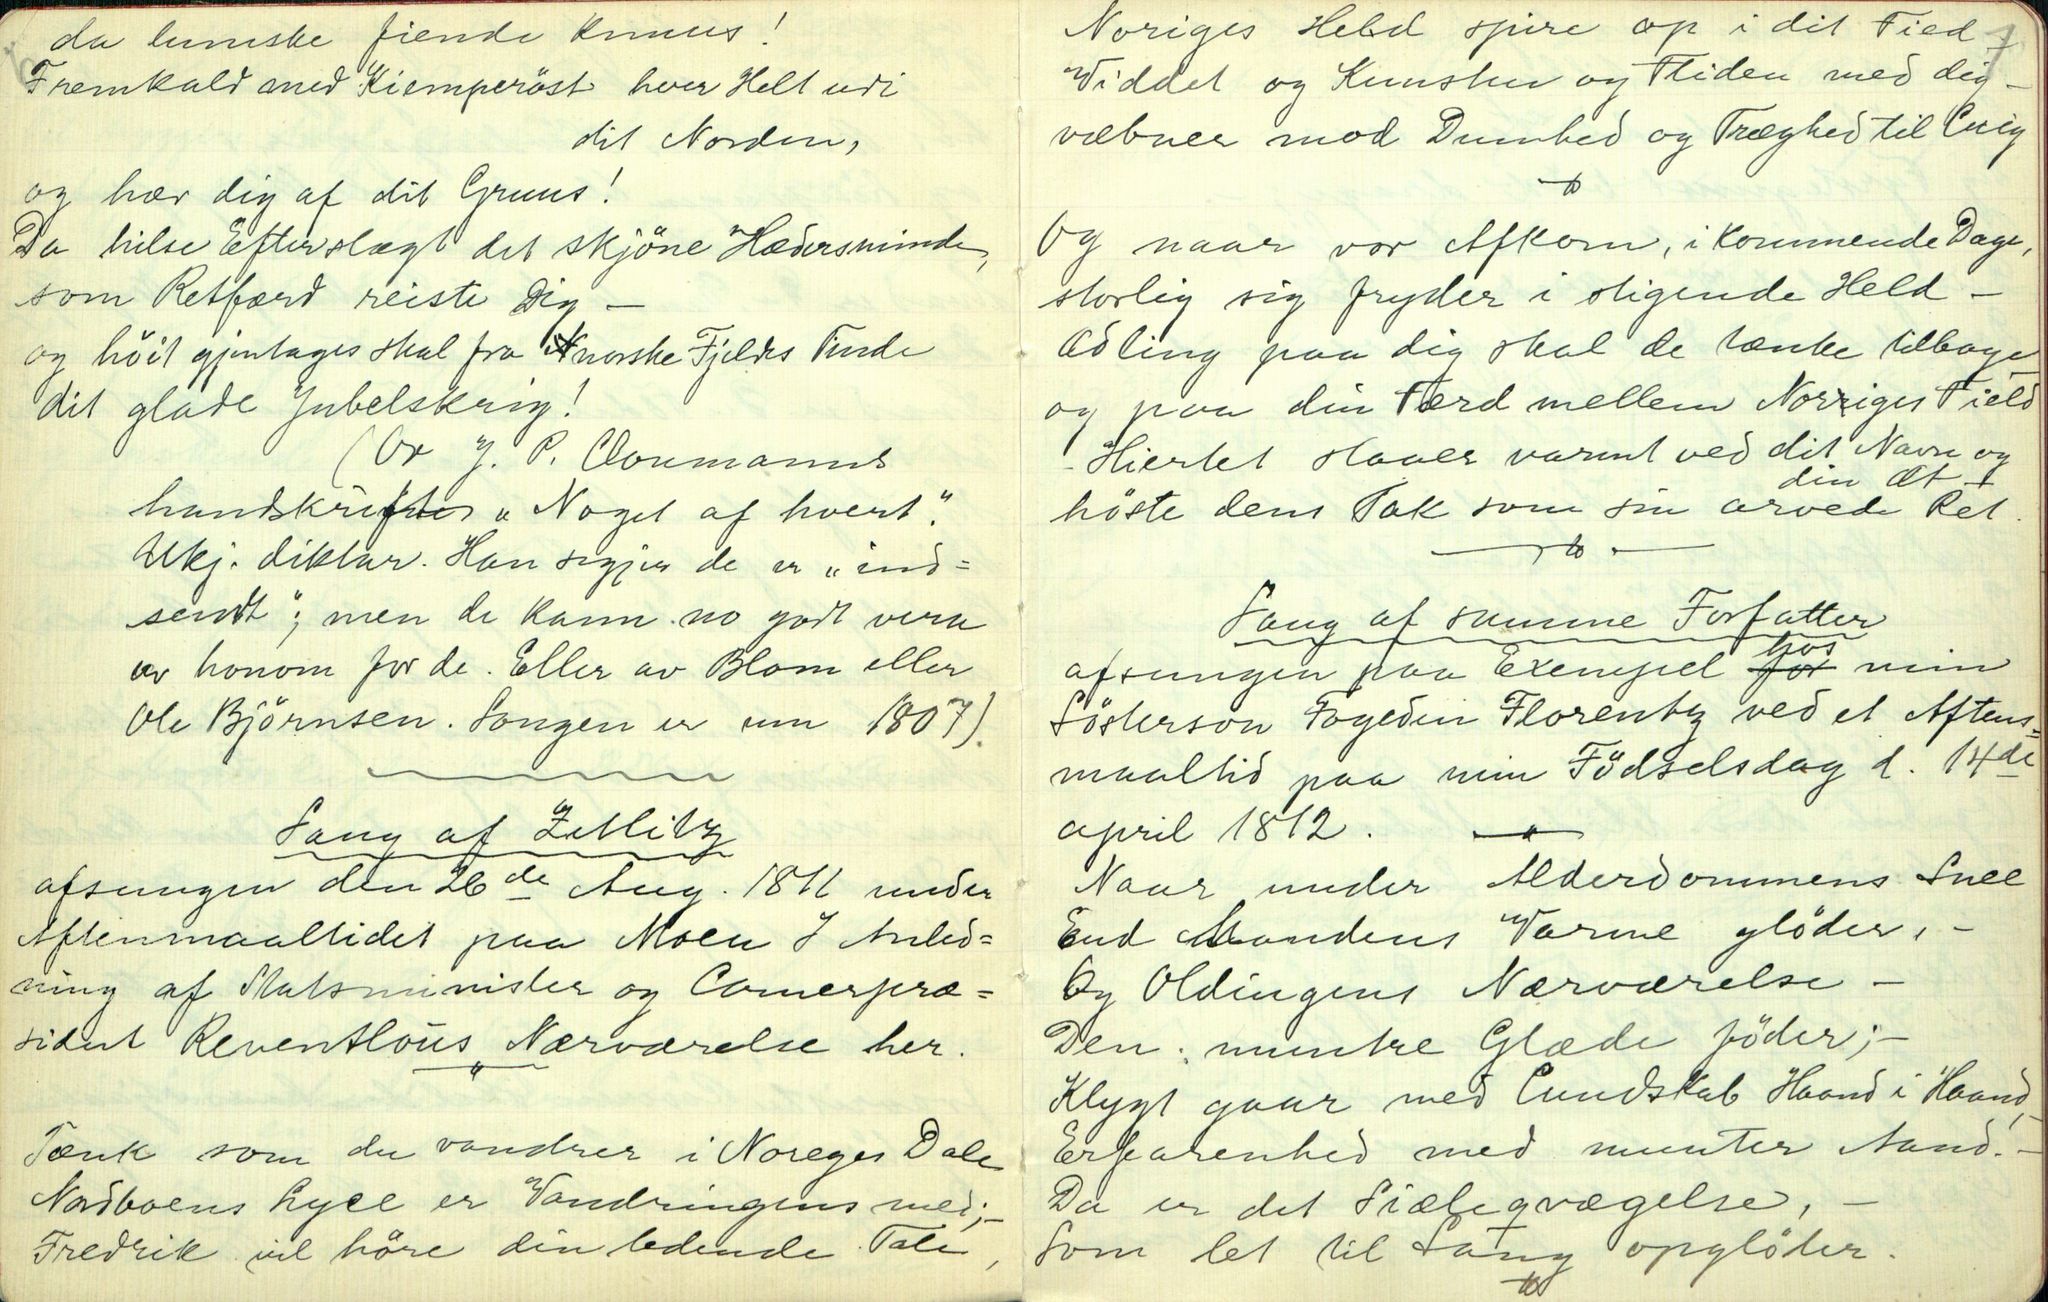 da lumske fiende knuus!
Fremkald med Kiemperöst hver Helt udi
dit Norden,
og hæv dig af dit Gruus!
Da hilse Efterslægt det skjöne Hædersminde,
som Retfærd reiste Dig —
og höit gjentages skal fra norske Fjelds Tinde
dit glade Jubelskrig!
(Or J. P. 
handskrifter „Noget af hvert".
Ukj. diktar. Han segjer de er „ind=
sendt"; men de kann no godt vera
av honom for de. Eller av Blom eller
Ole Björnsen. Songen er um 1807).
Sang af Zetlitz
afsungen den 26de Aug. 1811 under
Aftenmaaltidet paa Moen I Anled=
ning af Statsminister og Camerpræ=
sident Reventlous Nærværelse her.
Tænk som du vandrer i Noreges Dale
Nordboens Lyce er Vandringens med;-
Fredrik vil höre din ledende Tale,
Noriges Held spire op i dit Fied -
Widdet og Kunsten og Fliden med dig -
væbner mod Dumhed og Træghed til Crig
Og naar vor Afkom, i kommende Dage,
storlig sig fryder i stigende Held -
Ædling paa dig skal de tænke tilbage
og paa din Færd mellem Norriges Field
- Hiertet slaaer varmt ved dit Navn og
din Æt -
höste dens Tak som sin arvede Ret.
Sang af samme Forfatter
afsungen paa Exempel for hos min
Sösterson Fogeden Florentz ved et Aftens=
maaltid paa min Födselsdag d. 14de
april 1812.
Naar under Alderdommens Snee
End Mandens Varme glöder, -
Og Oldingens Nærværelse -
Den muntre Glæde föder; -
Klygt gaar med Cundskab Haand i Haand, -
Erfarenhed med munter Aand. -
Da er det Siæleqvægelse, -
Som let til Sang opglöder.